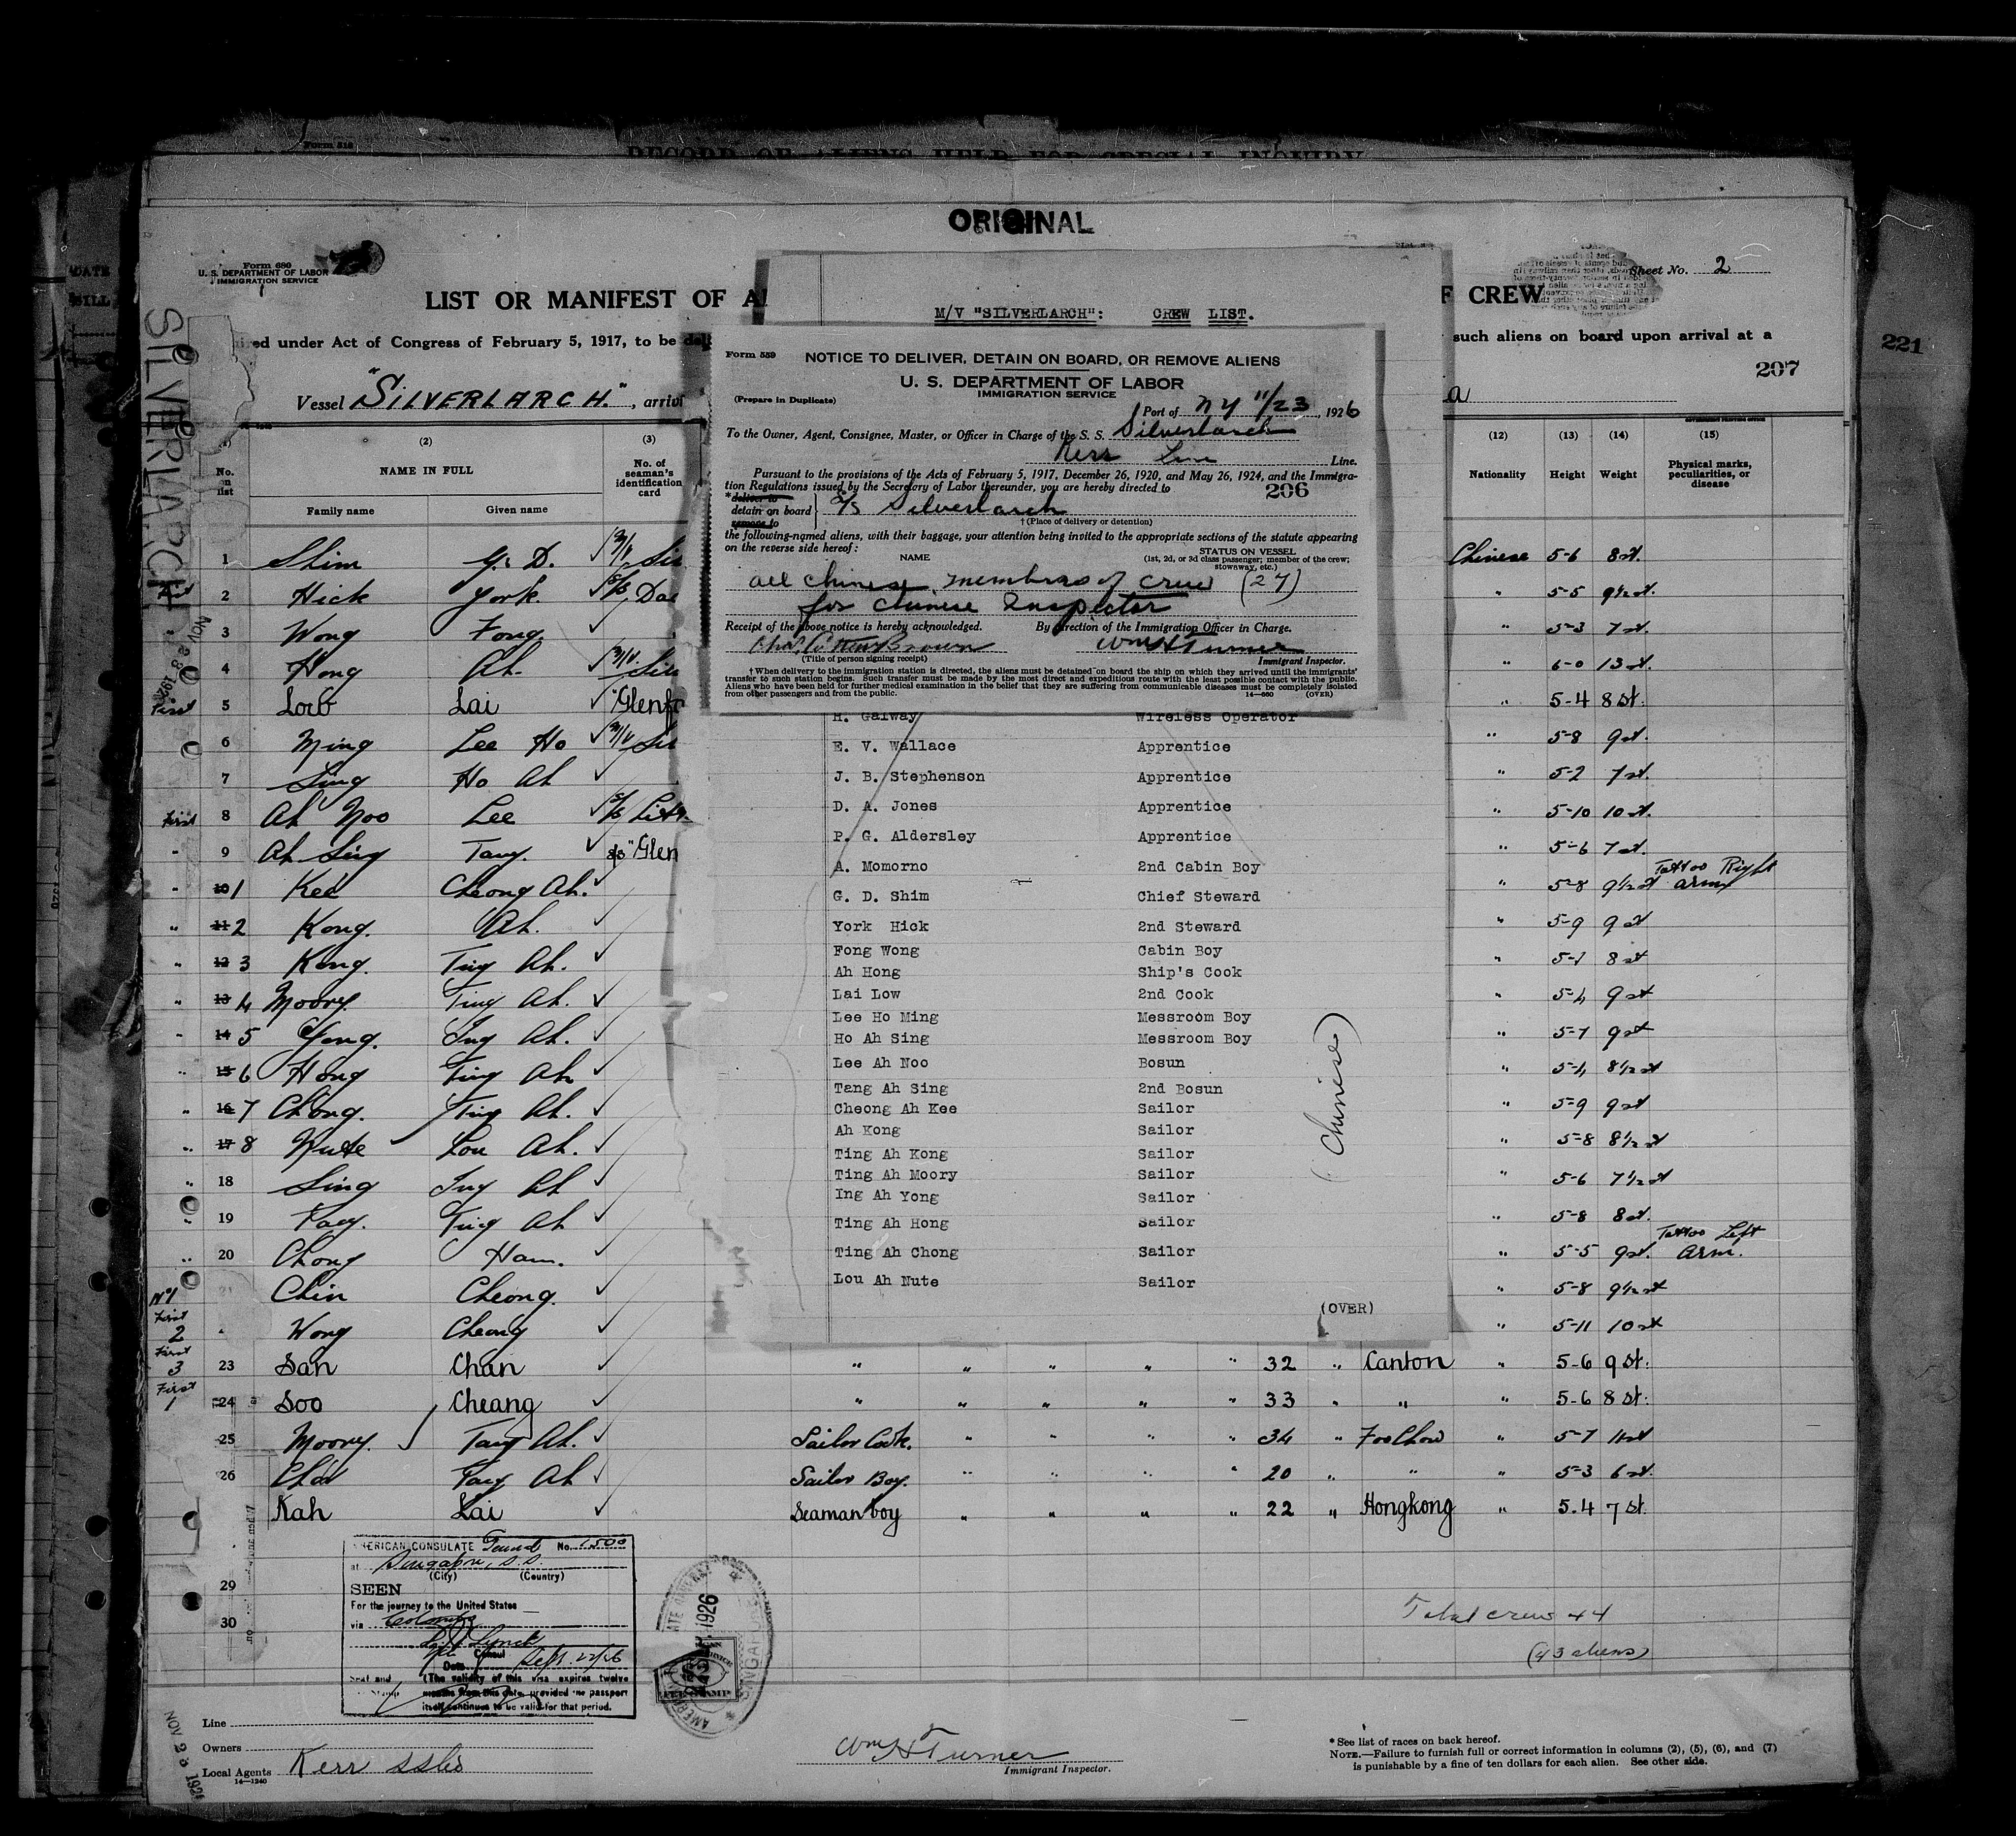 Form 518
RECORD OF ALIENS HELD FOR SPECIAL INQUIRY
ORIGINAL
Form 680
U. S. DEPARTMENT OF LABOR
IMMIGRATION SERVICE
Sheet No. 2
LIST OR MANIFEST OF AL
F CREW
ired under Act of Congress of February 5, 1917, to be del
such aliens on board upon arrival at a
207
221
DATE
Vessel "SILVERLARCH.", arrivi
a
SILVERLARCH
NOV 23 1926
(1) (2) (3)
No. on list
NAME IN FULL
No. of seaman's identification card
Family name Given name
(12) (13) (14) (15)
Nationality Height Weight Physical marks, peculiarities, or disease
M/V "SILVERLARCH": CREW LIST.
Form 559
NOTICE TO DELIVER, DETAIN ON BOARD, OR REMOVE ALIENS
U. S. DEPARTMENT OF LABOR
IMMIGRATION SERVICE
(Prepare in Duplicate)
Port of NY 11/23, 1926
To the Owner, Agent, Consignee, Master, or Officer in Charge of the S. S. Silverlarch
Kerr Line Line.
Pursuant to the provisions of the Acts of February 5, 1917, December 26, 1920, and May 26, 1924, and the Immigra-
tion Regulations issued by the Secretary of Labor thereunder, you are hereby directed to
206
*deliver to
detain on board
remove to
S/S Silverlarch
† (Place of delivery or detention)
the following-named aliens, with their baggage, your attention being invited to the appropriate sections of the statute appearing
on the reverse side hereof:
NAME
STATUS ON VESSEL
(1st, 2d, or 3d class passenger; member of the crew;
stowaway, etc.)
all Chinese members of crew (27)
for Chinese Inspector
Receipt of the above notice is hereby acknowledged. By direction of the Immigration Officer in Charge.
Wm H Turner
(Title of person signing receipt) Immigrant Inspector.
† When delivery to the immigration station is directed, the aliens must be detained on board the ship on which they arrived until the immigrants'
transfer to such station begins. Such transfer must be made by the most direct and expeditious route with the least possible contact with the public.
Aliens who have been held for further medical examination in the belief that they are suffering from communicable diseases must be completely isolated
from other passengers and from the public. 14—660 (OVER)
H. Galway Wireless Operator
E. V. Wallace Apprentice
J. B. Stephenson Apprentice
D. A. Jones Apprentice
P. G. Aldersley Apprentice
A. Momorno 2nd Cabin Boy
G. D. Shim Chief Steward
York Hick 2nd Steward
Fong Wong Cabin Boy
Ah Hong Ship's Cook
Lai Low 2nd Cook
Lee Ho Ming Messroom Boy
Ho Ah Sing Messroom Boy
Lee Ah Noo Bosun
Tang Ah Sing 2nd Bosun
Cheong Ah Kee Sailor
Ah Kong Sailor
Ting Ah Kong Sailor
Ting Ah Moory Sailor
Ing Ah Yong Sailor
Ting Ah Hong Sailor
Ting Ah Chong Sailor
Lou Ah Nute Sailor
(Chinese)
(OVER)
1 Shim G. D. Chinese 5-6 8st.
2 Hick York. " 5-5 9½st.
3 Wong Fong " 5-3 7st.
4 Hong Ah. " 6-0 13st.
First 5 Low Lai "Glenf " 5-4 8St.
6 Ming Lee Ho " 5-8 9st.
7 Sing Ho Ah " 5-2 7st.
First 8 Ah Noo Lee " 5-10 10st.
" 9 Ah Sing Tang. S/S "Glen " 5-6 7st.
" 10 1 Kee Cheong Ah. " 5-8 9½st Tattoo Right arm
" 11 2 Kong. Ah. " 5-9 9st
" 12 3 Kong. Ting Ah. " 5-7 8st
" 13 4 Moory. Ting Ah. " 5-4 9st
" 14 5 Yong. Ing Ah. " 5-7 9st
" 15 6 Hong Ting Ah " 5-4 8½st
" 16 7 Chong. Ting Ah. " 5-9 9st
" 17 8 Nute Lou Ah. " 5-8 8½st
" 18 Sing Ing Ah " 5-6 7½st
" 19 Ting Ah " 5-8 8st.
" 20 Chong Ham. " 5-5 9st. Tattoo Left arm.
No 1 21 Chin Cheong. " 5-8 9½st
First 2 Wong Cheong " 5-11 10st
First 3 23 San Chan " " " " " 32 " Canton " 5-6 9St.
First 1 24 Soo Cheang " " " " " 33 " " " 5-6 8St.
25 Moory. Tang Ah. Sailor Cook. " " " " 34 " Foo Chow " 5-7 11st
26 Choi Tang Ah Sailor Boy. " " " " 20 " " " 5-3 6st.
Kah Lai Seaman boy " " " " 22 " Hongkong " 5.4 7St.
29
30
AMERICAN CONSULATE General No. 1500
at Singapore, S.S.
(City) (Country)
SEEN
For the journey to the United States
via Colombo
Consul
Date Sept. 22/26
Seal and Stamp (The validity of this visa expires twelve
months from this date, provided the passport
itself continues to be valid for that period.
1926
Total crew 44
(43 aliens)
NOV 23 1926
Line
Owners
Local Agents Kerr SS Co
14—1240
Wm H Turner
Immigrant Inspector.
* See list of races on back hereof.
NOTE.—Failure to furnish full or correct information in columns (2), (5), (6), and (7)
is punishable by a fine of ten dollars for each alien. See other side.